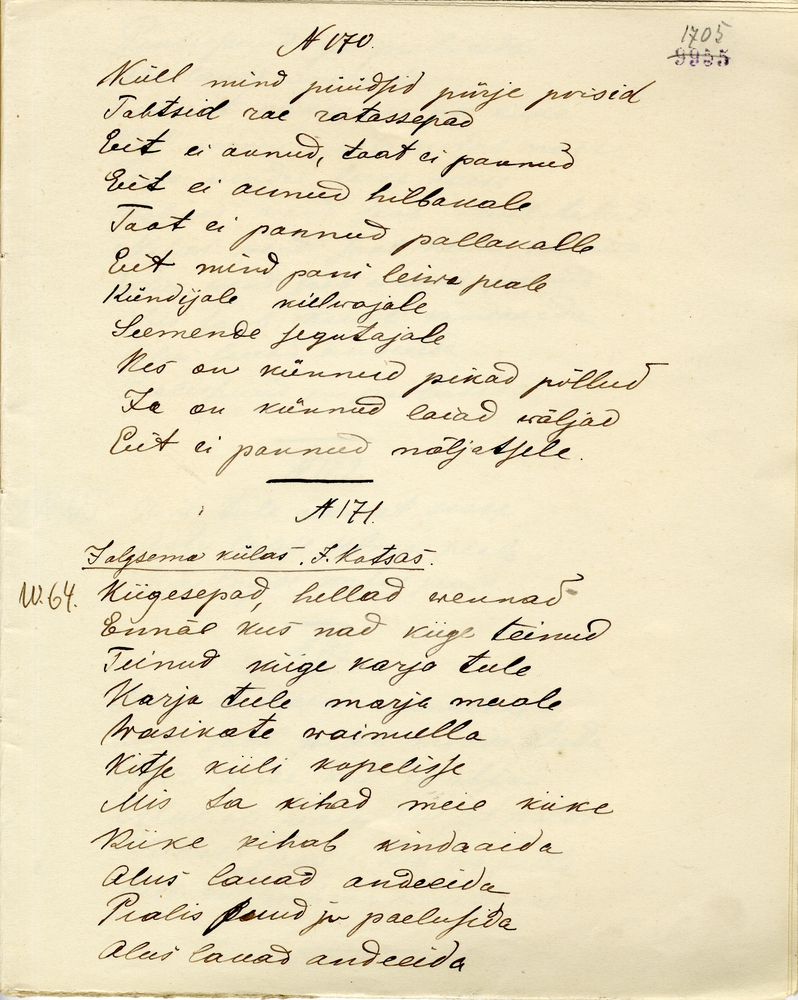 N 170.
1705
9935
Küll mind püüdsid pürje poisid
Tahtsid rae ratassepad
Eit ei annud, taat ei pannud
Eit ei annud hilbakale
Taat ei pannud pallakalle
Eit mind pani leiwa peale
Kündijale külwajale
Seemende segutajale
Kes on künnud pikad põllud
Ja on künnud laiad wäljad
Eit ei pannud näljatsele.
N 171.
Jalgsema külas. J. Katsas.
W. 64. Kiigesepad, hellad wennad
Ennäe kus nad kiige teinud
Teinud kiige karja teele
Karja teele marja maale
Wasikate wainulla
Kitse küli kopelisse
Mis sa kihad meie kiike
Kiike kihab kindaaida
Alus lauad andeeida
Pealis puud ju paelusida
Alus lauad andeeida